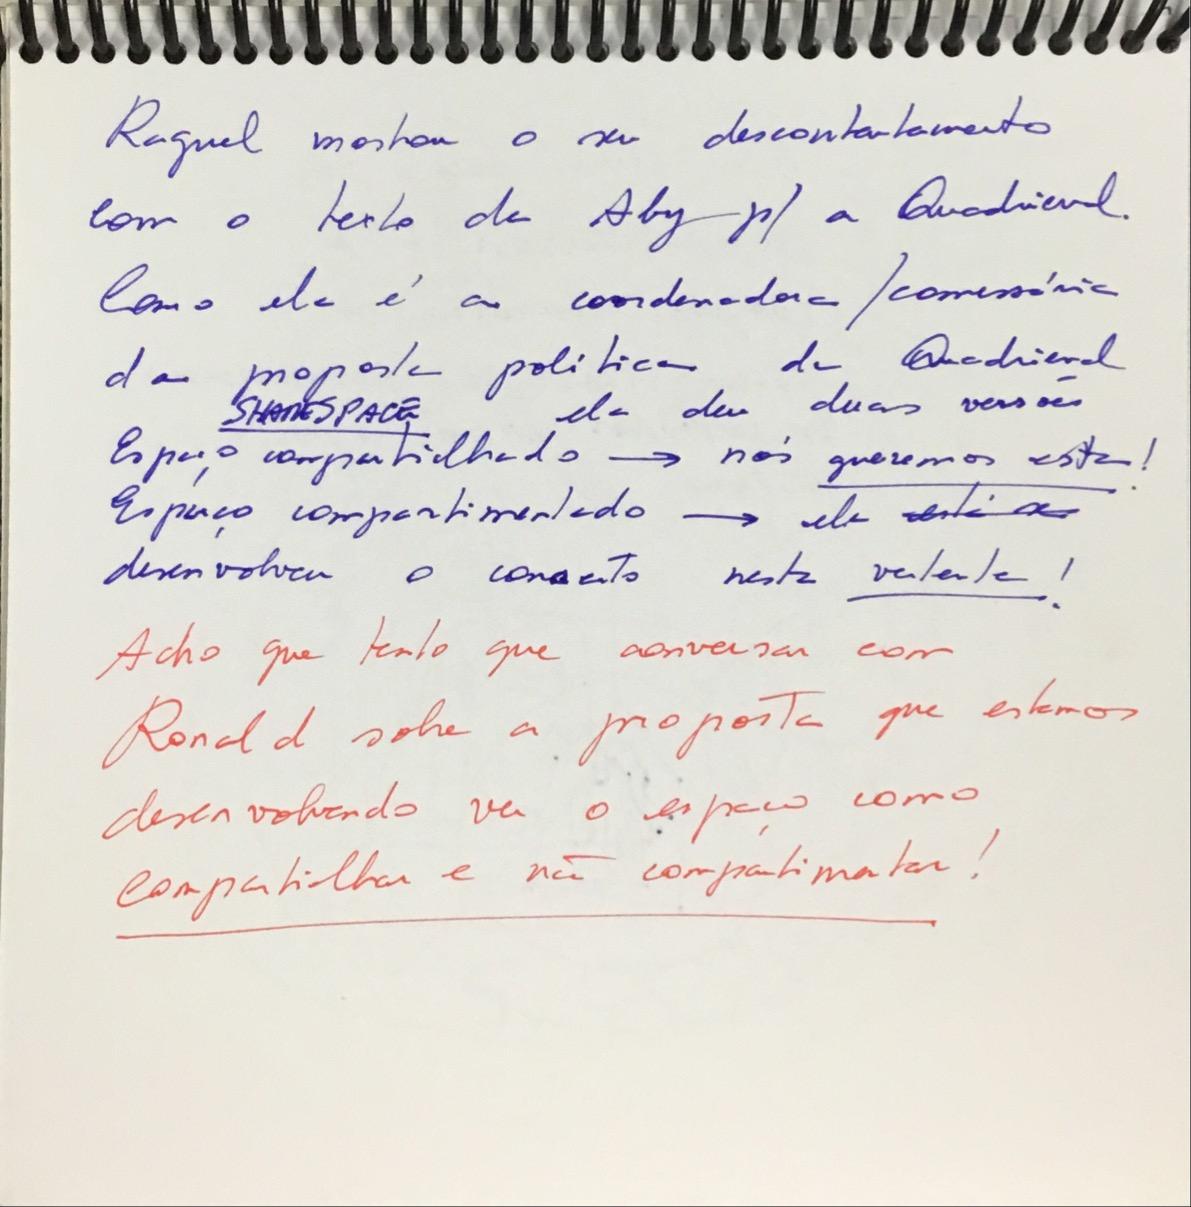 Raquel mostrou o seu descontentamento
com o texto da Aby p/ a Quadrienal.
Como ela é a coordenadora/comissária
da proposta política da Quadrienal
SHARESPACE ela deu duas versões
Espaço compartilhado → nós queremos esta!
Espaço compartimentado → ela está a
desenvolveu o conceito nesta vertente!
Acho que tenho que conversar com
Ronald sobre a proposta que estamos
desenvolvendo ver o espaço como
compartilhar e não compartimentar!